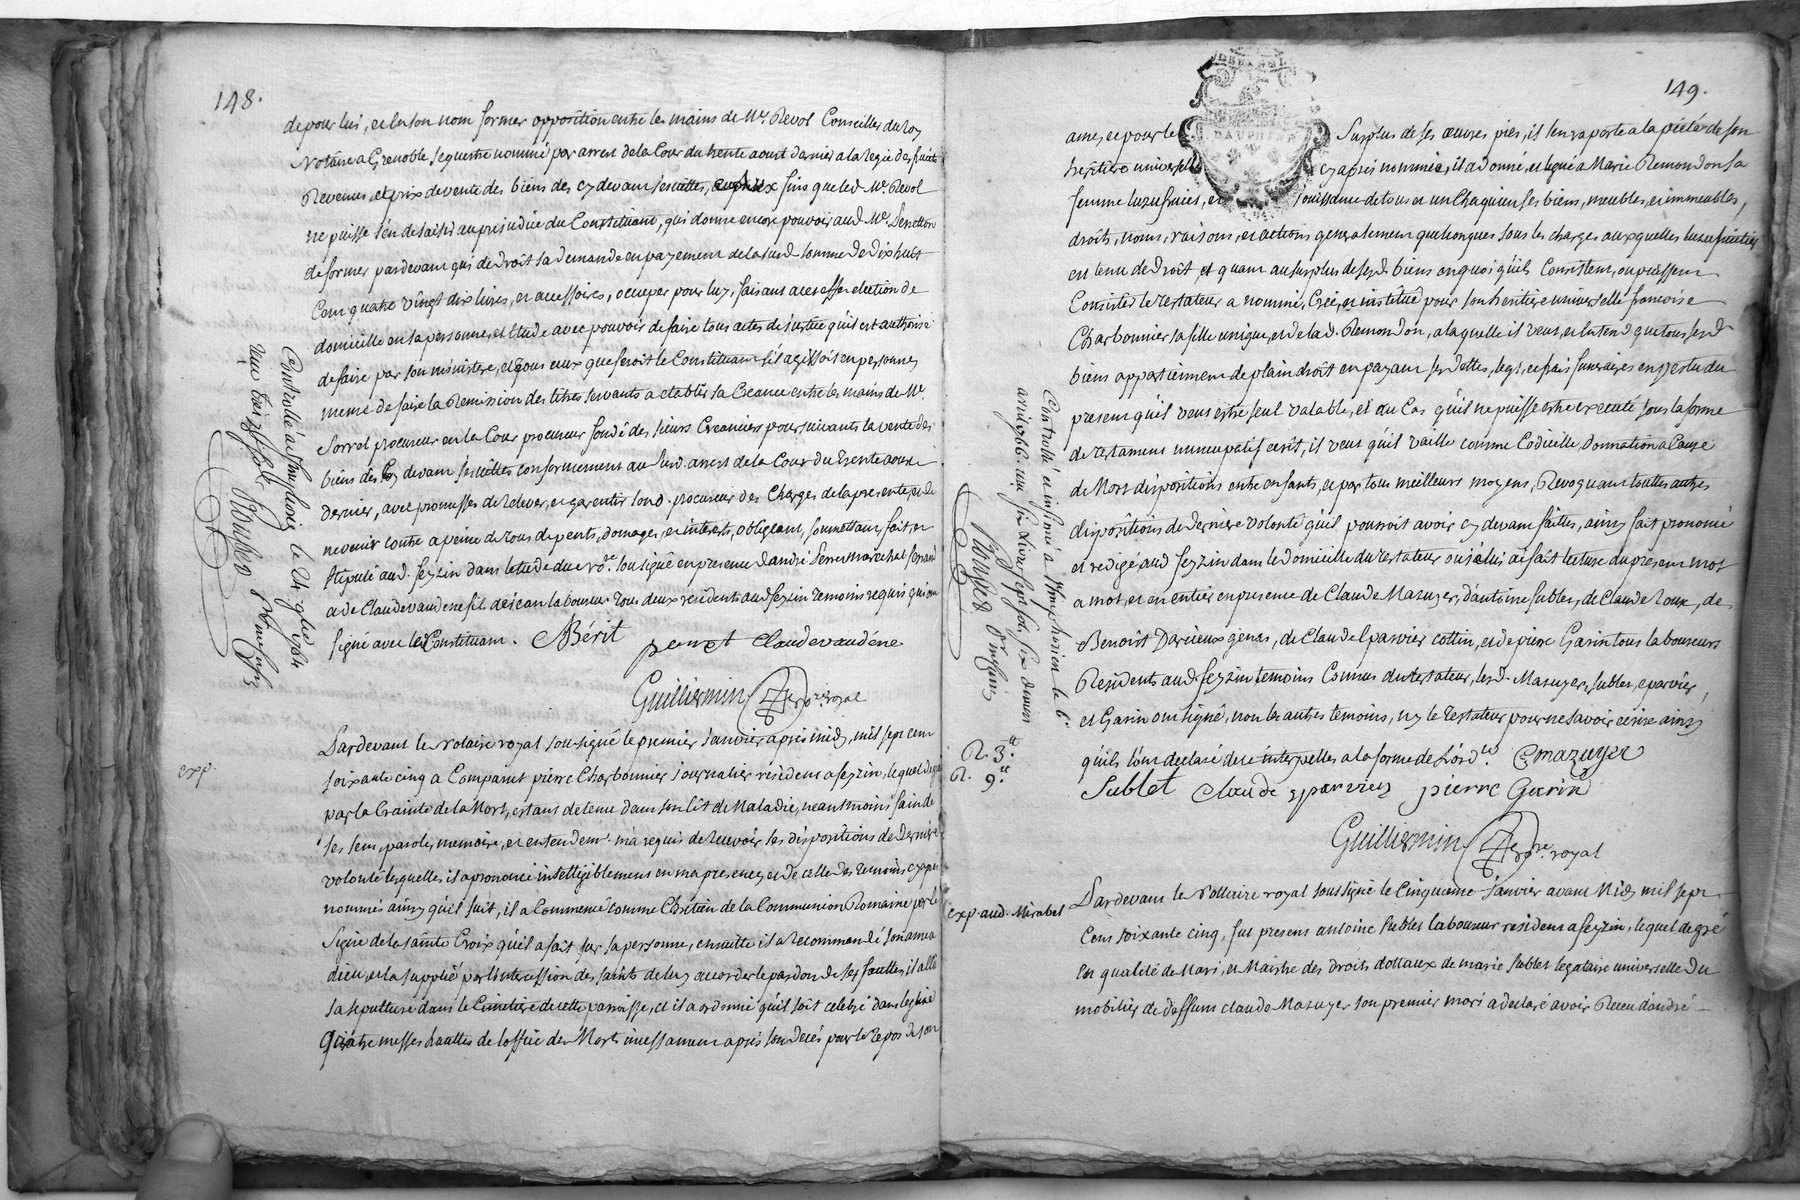 148.
de pour lui, et en son nom former opposition entre les mains de Mr. Revol Conseiller du Roy
Notaire a Grenoble sequestre nommé par arrest de la Cour du trente aoust dernier a la regie des fruits
Revenus, et prix de vente des biens des cy devant Jesuittes, aux fins que led. Mr. Revol
ne puisse s'en desaisir au prejudice du Constituant, qui donne encore pouvoir aud. Mr.
de former pardevant qui de droit sa demande en payement de la susd. somme de dix huit
Cent quatre vingt dix livres, et accessoires, occuper pour luy, faisant a cet effet election de
domicille en sa personne, et Etude avec pouvoir de faire tous actes de justice qu'il est authorisé
de faire par son ministere, et tous ceux que feroit le Constituant s'il agissoit en personne,
meme de faire la Remission des titres servants a etablir sa Creance entre les mains de Me.
Sorrel procureur en la Cour procureur fondé des sieurs Creanciers poursuivants la vente des
biens des Cy devant Jesuittes conformement au susd. arrest de la Cour du trente aoust
dernier, avec promesses de relever, et garentir sond. procureur des Charges de la presente, et de
n'evenir contre a peine de tous depents, domages, et interets, obligeant, soumettant, fait et
stipulé aud. Feyzin dans l'etude du no.re soussigné en presence d'andré Penet marechal ferrant
et de Claude vaudene fils de jean laboureur tous deux residents aud. feyzin temoins requis qui ont
signé avec le Constituant. Bérit
penet Claude vaudéne
Guilliermin no.re royal
Controllé a St Simphorien le 24
exp.
Pardevant le Notaire royal soussigné le premier Janvier apres midy, mil sept cent
soixante cinq a Comparut pierre Charbonnier journalier résident a feyzin, lequel de gré
par la Crainte de la Mort, estant detenu dans son lit de Maladie, neantmoins sain de
ses sens, parole, memoire, et entendemt. m'a requis de recevoir ses dispositions de Derniere
volonté lesquelles il a prononcé intelligiblement en ma presence, et de celle des temoins cy apres
nommés ainsy qu'il suit, il a Commencé comme Chrétien de la Communion Romaine par le
signe de la sainte Croix qu'il a fait sur sa personne, ensuitte il a recommandé son ame a
dieu, et la supplié par l'intercession des saints de luy accorder le pardon de ses fauttes, il a elu
sa sepulture dans le Cimetiere de cette parroisse, et il a ordonné qu'il soit celebré dans l'eglise
Quatre messes hauttes de l'office des Morts incessament apres son decés pour le repos de son
149.
DAUPHINE
ame, et pour le Surplus de ses œuvres pies, il s'en raporte a la pieté de son
heritiere universelle cy apres nommée, il a donné, et legué a Marie Remondon sa
femme l'uzufruict, et jouissance de tous et un Chaqu'un ses biens, meubles, et immeubles,
droits, noms, raisons, et actions generalement quelconques sous les charges auxquelles l'uzufruitier
est tenu de droit et quant au surplus de sesd. biens en quoi qu'ils Consistent, ou puissent
Consister le testateur a nommé, Créé, et institué pour son heritiere universelle francoise
Charbonnier sa fille unique, et de lad. Remondon, a laquelle il veut, et entend que tous sesd.
biens appartiennent de plain droit en payant ses dettes, legs, et frais funeraires en vertu du
present qu'il veut estre seul valable, et au Cas qu'il ne puisse estre executé sous la forme
de testament nuncupatif ecrit, il veut qu'il vaille comme Codicille donnation a Cause
de Mort dispositions entre enfants, et par tous meilleurs moyens, Revoquant touttes autres
dispositions de derniere volonté qu'il pourroit avoir cy devant faittes, ainsy fait prononcé
et redigé aud. feyzin dans le domicille du testateur ou je lui ai fait lecture du present mot
a mot, et en entier en presence de Claude Mazuyer, d'antoine sublet, de Claude Roux, de
Benoist Darcieux genas, de Claude Eparvier cottin, et de pierre Garin tous laboureurs
Residents aud. feyzin temoins Connus du testateur, lesd. Mazuyer, sublet, eparvier,
et Garin ont signé, non les autres temoins, ny le testateur pour ne savoir écrire ainsy
qu'ils l'ont declaré de ce interpellés a la forme de l'ord.ce C mazuyer
Sublet Claude eparvier pierre Garin
Guilliermin no.re royal
Controllé et insinué a St Simphorien le 6.
exp. aud. Mirabel
Pardevant le Nottaire royal soussigné le Cinquieme Janvier avant Midy mil sept
Cent soixante cinq, fut present antoine sublet laboureur resident a feyzin, lequel de gré
en qualité de Mari, et Maistre des droits dottaux de marie sublet legataire universelle du
mobilier de deffunt claude Mazuyer son premier mari a declaré avoir Receu d'andré